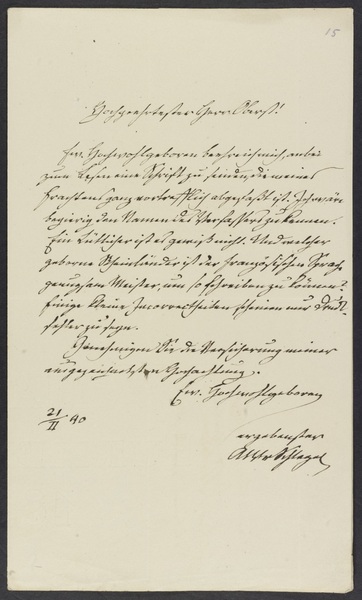 15
Hochgeehrtester Herr Oberst!
Ew. Hochwohlgeboren beehre ich mich, anbei
zum Lesen eine Schrift zu senden, die meines
Erachtens ganz vortrefflich abgefaßt ist. Ich wäre
begierig den Namen des Verfassers zu kennen.
Ein Lütticher ist es gewiß nicht. Und welcher
geborne Rheinländer ist der französischen Sprache
genugsam Meister, um so schreiben zu können?
Einige kleine Incorrectheiten scheinen nur Druck-
fehler zu seyn.
Genehmigen Sie die Versicherung meiner
ausgezeichnetsten Hochachtung.
Ew. Hochwohlgeboren
21/II 40
ergebenster
AWvSchlegel